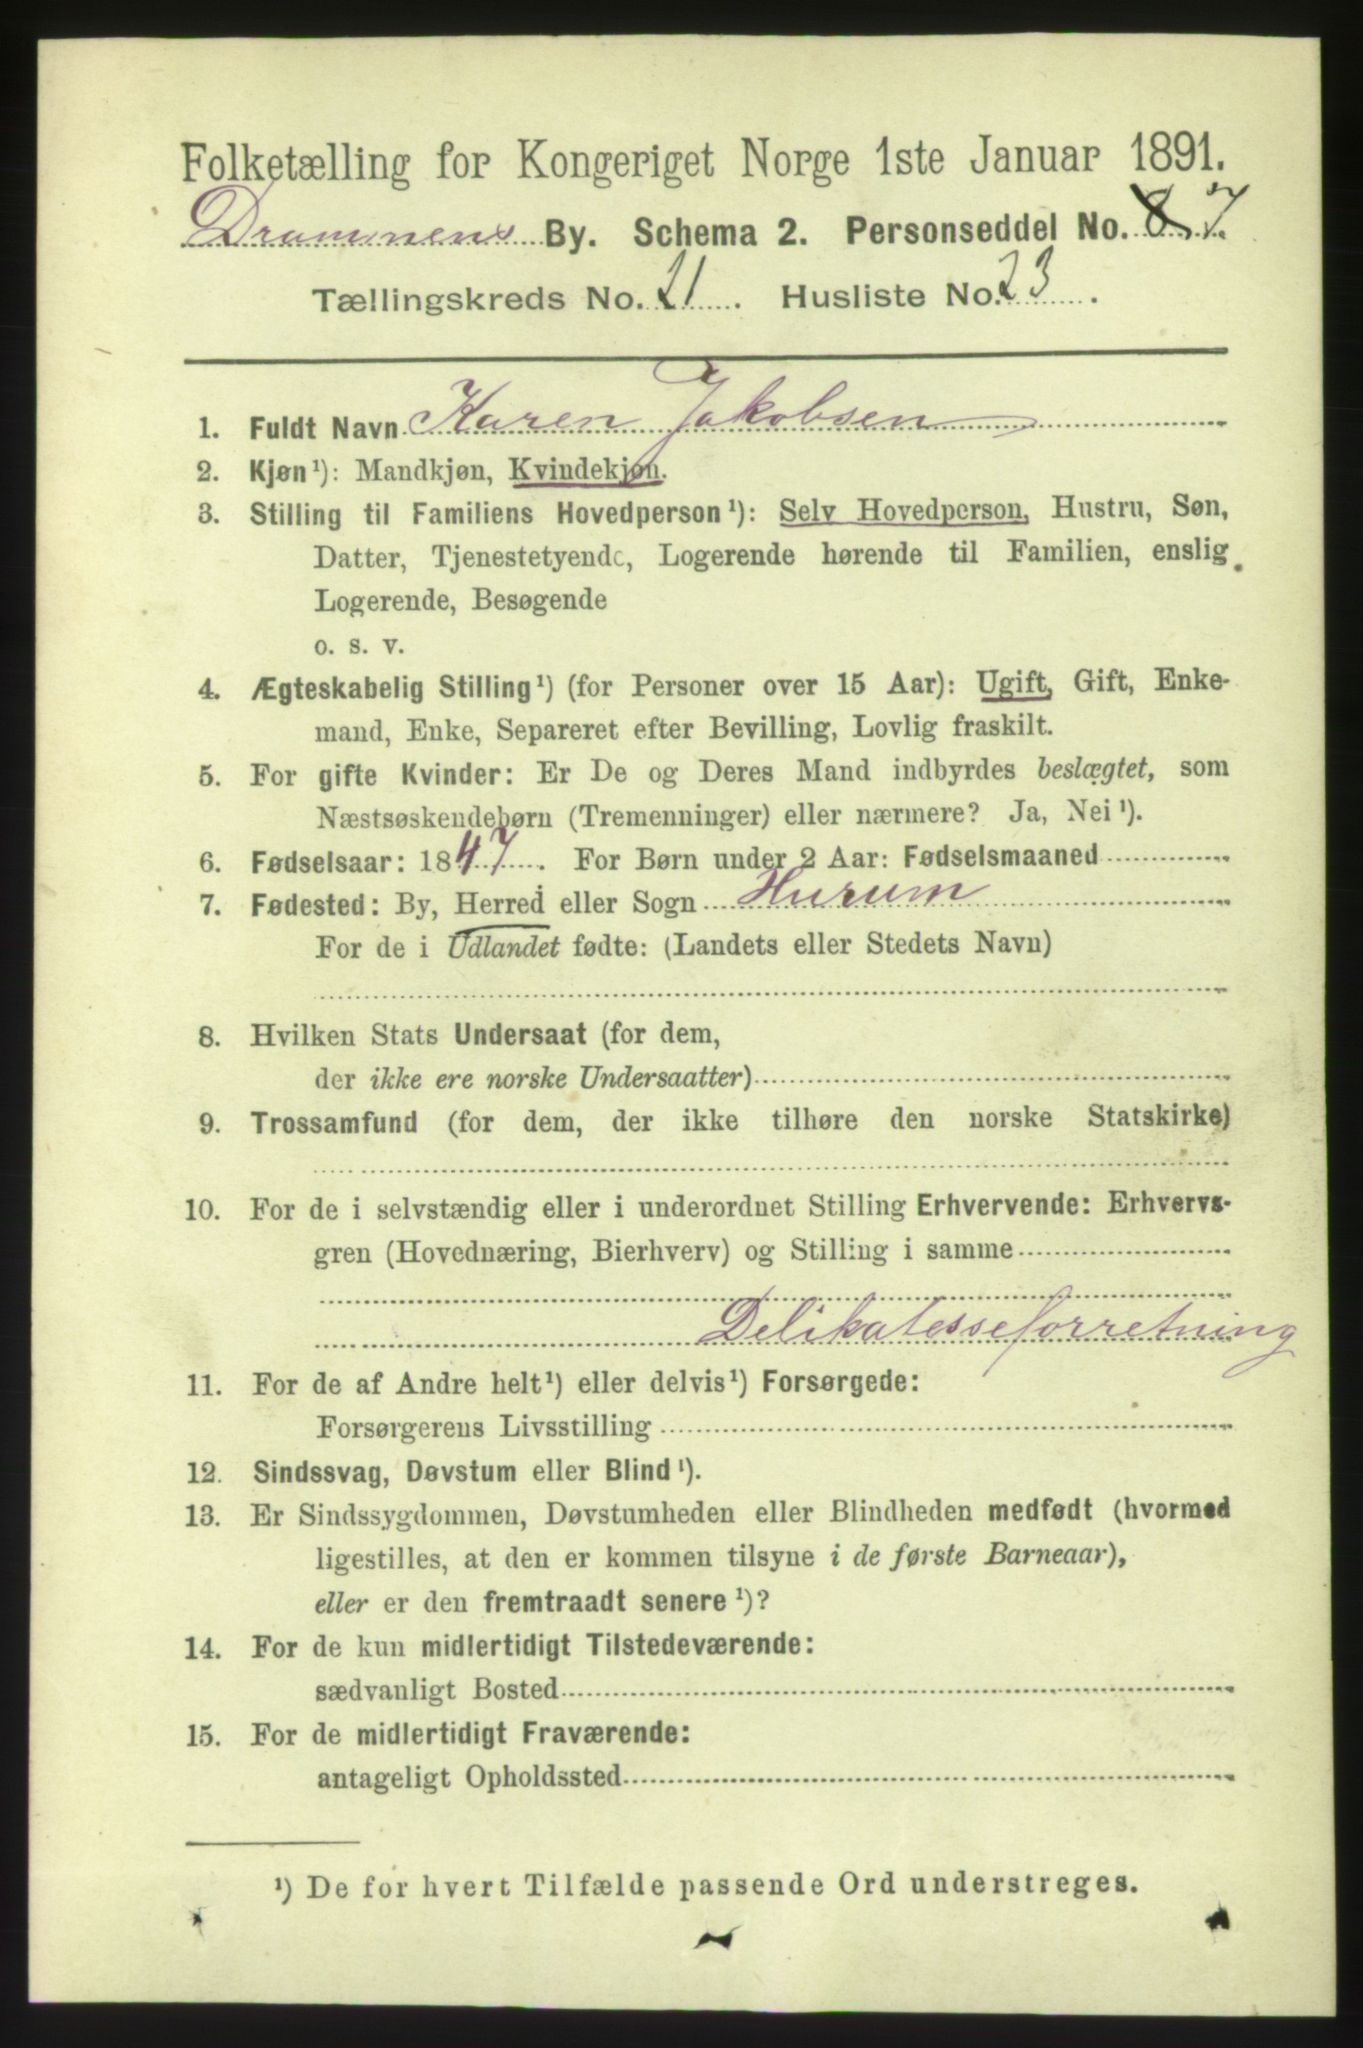 Folketælling for Kongeriget Norge 1ste Januar 1891.
Drammens By. Schema 2. Personseddel No. 8 7
Tællingskreds No. 21. Husliste No. 23.
1. Fuldt Navn Karen Jakobsen
2. Kjøn¹): Mandkjøn, Kvindekjøn.
3. Stilling til Familiens Hovedperson¹): Selv Hovedperson, Hustru, Søn,
Datter, Tjenestetyende, Logerende hørende til Familien, enslig
Logerende, Besøgende
o. s. v.
4. Ægteskabelig Stilling¹) (for Personer over 15 Aar): Ugift, Gift, Enke-
mand, Enke, Separeret efter Bevilling, Lovlig fraskilt.
5. For gifte Kvinder: Er De og Deres Mand indbyrdes beslægtet, som
Næstsøskendebørn (Tremenninger) eller nærmere? Ja, Nei¹).
6. Fødselsaar: 1847. For Børn under 2 Aar: Fødselsmaaned
7. Fødested: By, Herred eller Sogn Hurum
For de i Udlandet fødte: (Landets eller Stedets Navn)
8. Hvilken Stats Undersaat (for dem,
der ikke ere norske Undersaatter)
9. Trossamfund (for dem, der ikke tilhøre den norske Statskirke)
10. For de i selvstændig eller i underordnet Stilling Erhvervende: Erhvervs-
gren (Hovednæring, Bierhverv) og Stilling i samme
Delikatesseforretning
11. For de af Andre helt¹) eller delvis¹) Forsørgede:
Forsørgerens Livsstilling
12. Sindssvag, Døvstum eller Blind¹).
13. Er Sindssygdommen, Døvstumheden eller Blindheden medfødt (hvormed
ligestilles, at den er kommen tilsyne i de første Barneaar),
eller er den fremtraadt senere¹)?
14. For de kun midlertidigt Tilstedeværende:
sædvanligt Bosted
15. For de midlertidigt Fraværende:
antageligt Opholdssted
¹) De for hvert Tilfælde passende Ord understreges.